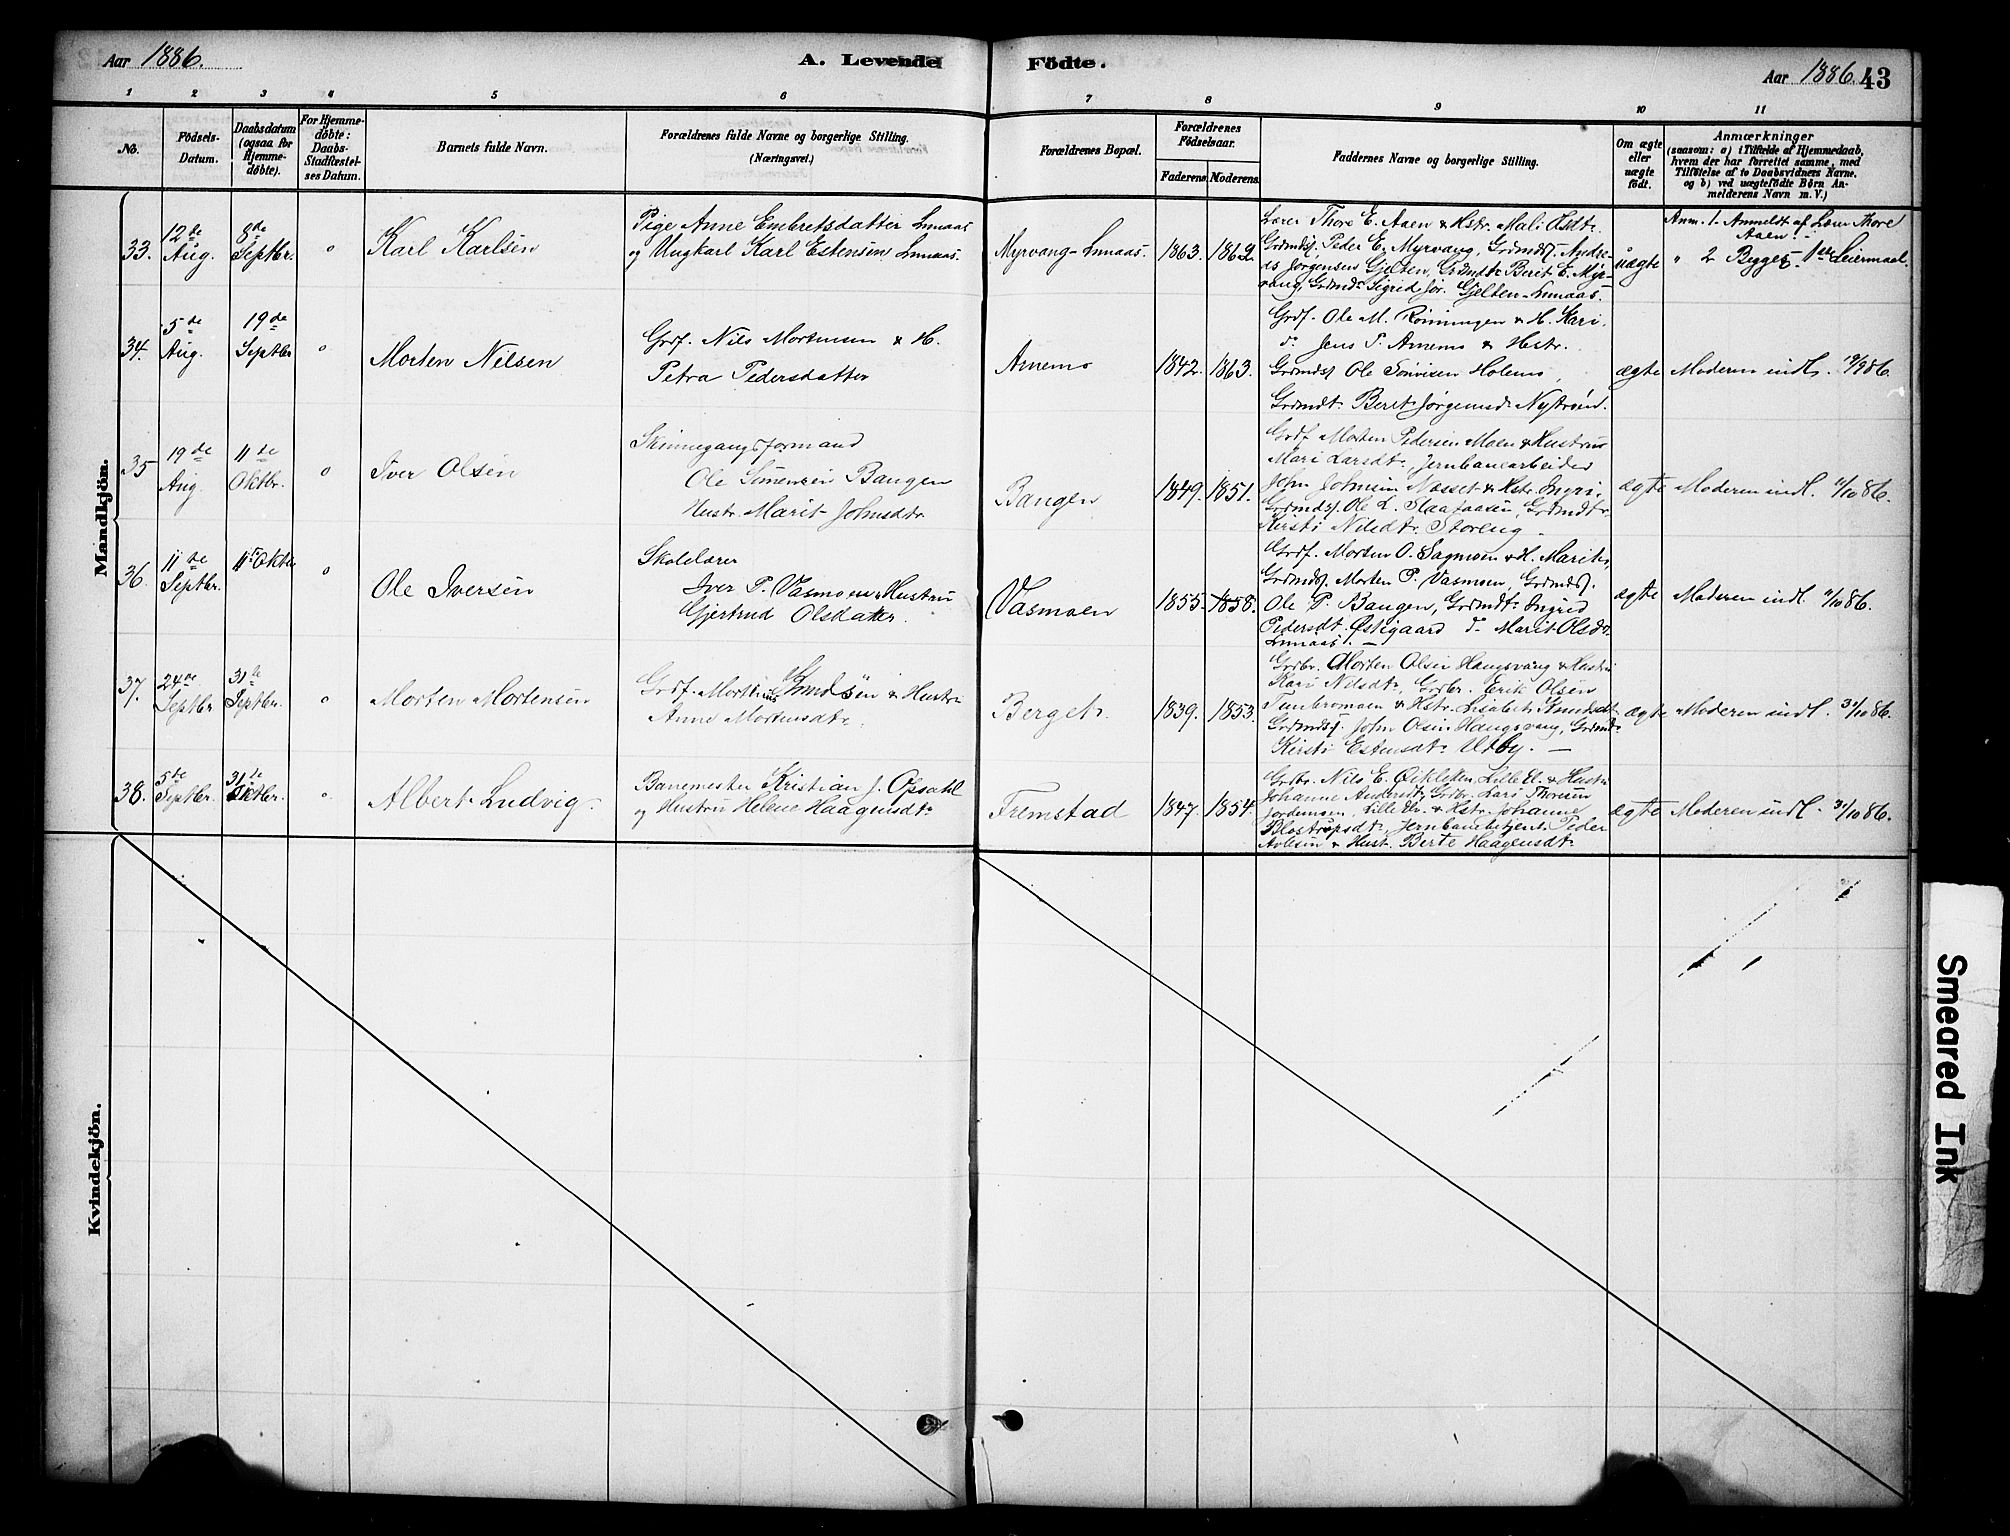 Aar 1886.
A. Levende Födte.
Aar 1886. 43
1 2 3 4 5 6 7 8 9 10 11
No.
Födsels-
Datum.
Daabsdatum
(ogsaa for
Hjemme-
döbte).
For Hjemme-
döbte:
Daabs-
Stadfæstel-
ses Datum.
Barnets fulde Navn.
Forældrenes fulde Navne og borgerlige Stilling.
(Næringsvei.)
Forældrenes Bopæl.
Forældrenes
Födselsaar.
Faderens. Moderens.
Faddernes Navne og borgerlige Stilling.
Om ægte
eller
uægte
födt.
Anmærkninger
(saasom: a) i Tilfælde af Hjemmedaab,
hvem der har forrettet samme, med
Tilföielse af to Daabsvidners Navne.
og b) ved uægtefödte Börn An-
melderens Navn m. V.)
Mandkjön.
33.
12te
Aug.
8de
Septbr.
0
Karl Karlsen
Pige Anne Embretsdatter Lunaas
og Ungkarl Karl Estensen Lunaas.
Myrvang-Lunaas.
1863. 1862.
Lærer Thore E. Aaen & Hstr. Mali Olsdtr.
Grdmds. Peder E. Myrvang, Grdmds. Andre-
as Jørgensen Gjelten, Grdmdtr. Berit E. Myr-
vang, Grdmdr. Sigrid Jør. Gjelten-Lunaas.
uægte
Anm. 1. Anmeldt af Lærer Thore
Aaen.
" 2 Begges 1ste Leiermaal.
34.
5te
Aug.
19de
Septbr
0
Morten Nilsen
Grdf. Nils Mortensen & H.
Petra Pedersdatter
Arnemo
1842. 1863.
Grdf. Ole M. Rønningen & H. Kari.
do Jens P. Arnemo & Hstr.
Grdmds. Ole Holemo,
Grdmdtr. Berit Jørgensdr. Nystrøen.
ægte
Moderen indl. 19/9 86.
35
19de
Aug.
11te
Oktbr.
0
Iver Olsen
Skinnegangsformand
Ole Simensen Bangen
Hustr. Marit Johnsdtr.
Bangen
1849. 1851.
Grdf. Morten Pedersen Moen & Hustru
Mari Larsdtr., Jernbanearbeider
John Johnsen Næsset & Hstr. Ingri,
Grdmds. Ole L. , Grdmdtr.
Kirsti Nilsdtr. Storeng.
ægte
Moderen indl. 11/10 86.
36.
11te
Septbr.
11te Oktbr
0
Ole Iversen
Skolelærer
Iver P. Vasmoen & Hustru
Gjertrud Olsdatter.
Vasmoen
1855. 1858.
Grdf. Morten O. Sagmoen & H. Marit,
Grdmds. Morten P. Vasmoen, Grdmds.
Ole P. Bangen, Grdmdtr. Ingrid
Pedersdt. Østigaard do Marit Olsdr.
Lunaas. —
ægte
Moderen indl. 11/10 86.
37.
24de
Septbr
31te
Septbr.
0
Morten Mortensen
Grdf. Mortinus Knudsen & Hustru
Anne Mortensdtr.
Berget.
1839. 1853.
Grdbr. Morten Olsen Haugsvang & Hustru
Kari Nilsdtr., Grdbr. Erik Olsen
Tunbromoen & Hstr. Lisabet Knudsdtr.
Grdmds. John Olsen Haugsvang, Grdmd.
Kirsti Estensdtr. Utby. —
ægte
Moderen indl. 31/10 86.
38.
5te
Septbr.
31te
Oktbr.
0
Albert Ludvig
Banemester Kristian J. Opsahl
og Hustru Helene Haagensdtr.
Fremstad
1847. 1854.
Grdbr. Nils E. Lille El. & Hustr.
Johanne Andersdt., Grdbr. Lars Thoresen
Jordemoen, Lille Elv. & Hstr. Johanne
, Jernbanebetjent Peder
& Hust. Berte Haagensdtr.
ægte
Moderen indl. 31/10 86.
Kvindekjön.
Smeared Ink